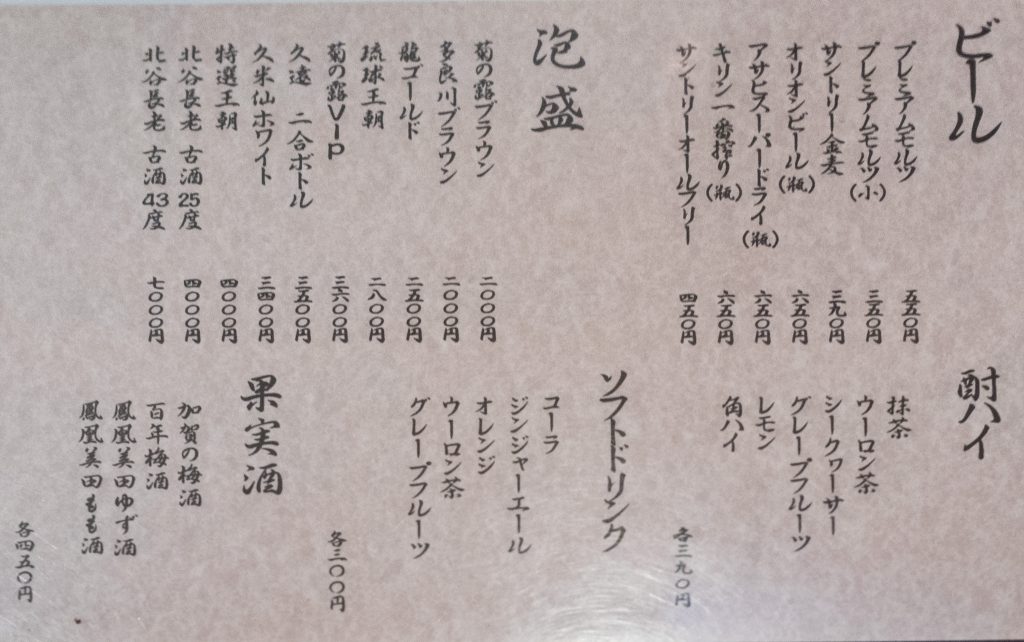 ビール
プレミアムモルツ 五五〇円
プレミアムモルツ(小) 三五〇円
サントリー金麦 三九〇円
オリオンビール(瓶) 六五〇円
アサヒスーパードライ(瓶) 六五〇円
キリン一番搾り(瓶) 六五〇円
サントリーオールフリー 四五〇円
酎ハイ
抹茶
ウーロン茶
シークヮーサー
グレープフルーツ
レモン
角ハイ
各三九〇円
泡盛
菊の露ブラウン 二〇〇〇円
多良川ブラウン 二〇〇〇円
龍ゴールド 二五〇〇円
琉球王朝 二八〇〇円
菊の露VIP 三六〇〇円
久遠 二合ボトル 三五〇〇円
久米仙ホワイト 三四〇〇円
特選王朝 四〇〇〇円
北谷長老 古酒25度 四〇〇〇円
北谷長老 古酒43度 七〇〇〇円
ソフトドリンク
コーラ
ジンジャーエール
オレンジ
ウーロン茶
グレープフルーツ
各三〇〇円
果実酒
加賀の梅酒
百年梅酒
鳳凰美田ゆず酒
鳳凰美田もも酒
各四五〇円